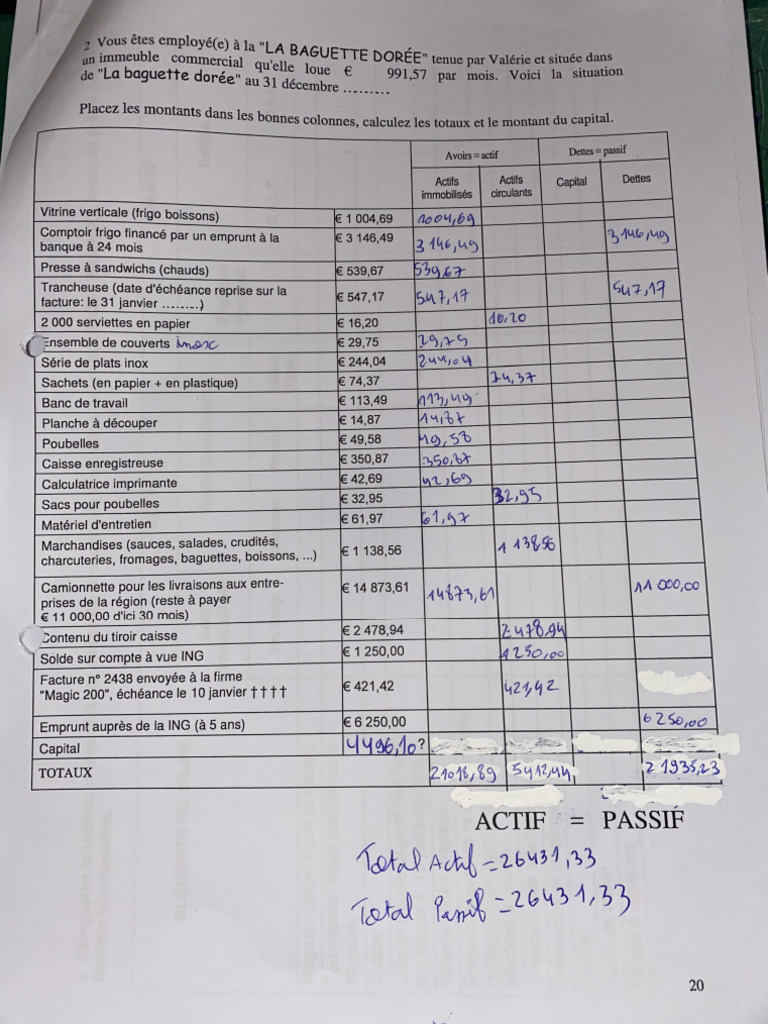 2 Vous êtes employé(e) à la "LA BAGUETTE DORÉE" tenue par Valérie et située dans
un immeuble commercial qu'elle loue € 991,57 par mois. Voici la situation
de "La baguette dorée" au 31 décembre .........
Placez les montants dans les bonnes colonnes, calculez les totaux et le montant du capital.
Avoirs = actif Dettes = passif
Actifs immobilisés Actifs circulants Capital Dettes
Vitrine verticale (frigo boissons) € 1 004,69 1004,69
Comptoir frigo financé par un emprunt à la
banque à 24 mois € 3 146,49 3 146,49 3 146,49
Presse à sandwichs (chauds) € 539,67 539,67
Trancheuse (date d'échéance reprise sur la
facture: le 31 janvier .........) € 547,17 547,17 547,17
2 000 serviettes en papier € 16,20 16,20
Ensemble de couverts inox € 29,75 29,75
Série de plats inox € 244,04 244,04
Sachets (en papier + en plastique) € 74,37 74,37
Banc de travail € 113,49 113,49
Planche à découper € 14,87 14,87
Poubelles € 49,58 49,58
Caisse enregistreuse € 350,87 350,87
Calculatrice imprimante € 42,69 42,69
Sacs pour poubelles € 32,95 32,95
Matériel d'entretien € 61,97 61,97
Marchandises (sauces, salades, crudités,
charcuteries, fromages, baguettes, boissons, ...) € 1 138,56 1 138,56
Camionnette pour les livraisons aux entre-
prises de la région (reste à payer
€ 11 000,00 d'ici 30 mois) € 14 873,61 14873,61 11 000,00
Contenu du tiroir caisse € 2 478,94 2 478,94
Solde sur compte à vue ING € 1 250,00 1250,00
Facture n° 2438 envoyée à la firme
"Magic 200", échéance le 10 janvier †††† € 421,42 421,42
Emprunt auprès de la ING (à 5 ans) € 6 250,00 6 250,00
Capital 4496,10 ?
TOTAUX 21018,89 5412,44 21935,23
ACTIF = PASSIF
Total Actif = 26431,33
Total Passif = 26431,33
20